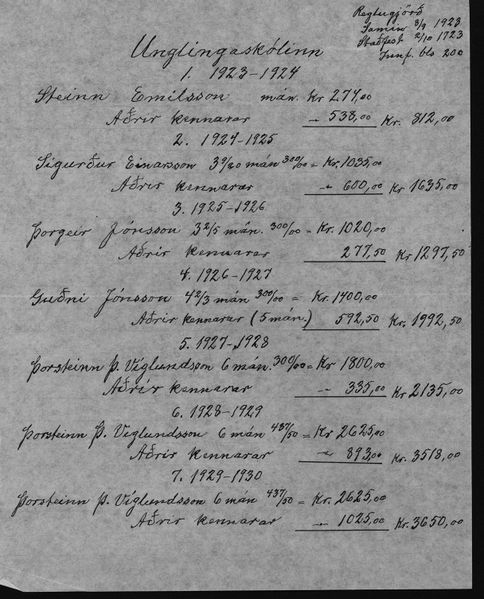 Reglugjörð
Samin 3/9 1923
Staðfest 2/10 1923
Innf. bls 200
Unglingaskólinn
1. 1923-1924
Steinn Emilsson mán. Kr 274,00
Aðrir kennarar - 538,00 Kr. 812,00
2. 1924-1925
Sigurður Einarsson 3 9/20 mán 300/00 = Kr. 1035,00
Aðrir kennarar - 600,00 Kr 1635,00
3. 1925-1926
Þorgeir Jónsson 3 2/5 mán. 300/00 = Kr. 1020,00
Aðrir kennarar 277,50 Kr 1297,50
4. 1926-1927
Guðni Jónsson 4 2/3 mán 300/00 = Kr. 1400,00
Aðrir kennarar (5 mán.) 592,50 Kr. 1992,50
5. 1927-1928
Þorsteinn Þ. Víglundsson 6 mán. 300/00 = Kr 1800,00
Aðrir kennarar - 335,00 Kr 2135,00
6. 1928-1929
Þorsteinn Þ. Víglundsson 6 mán 437/50 = Kr 2625,00
Aðrir kennarar - 893,00 Kr. 3518,00
7. 1929-1930
Þorsteinn Þ. Víglundsson 6 mán 437/50 = Kr. 2625,00
Aðrir kennarar - 1025,00 Kr. 3650,00